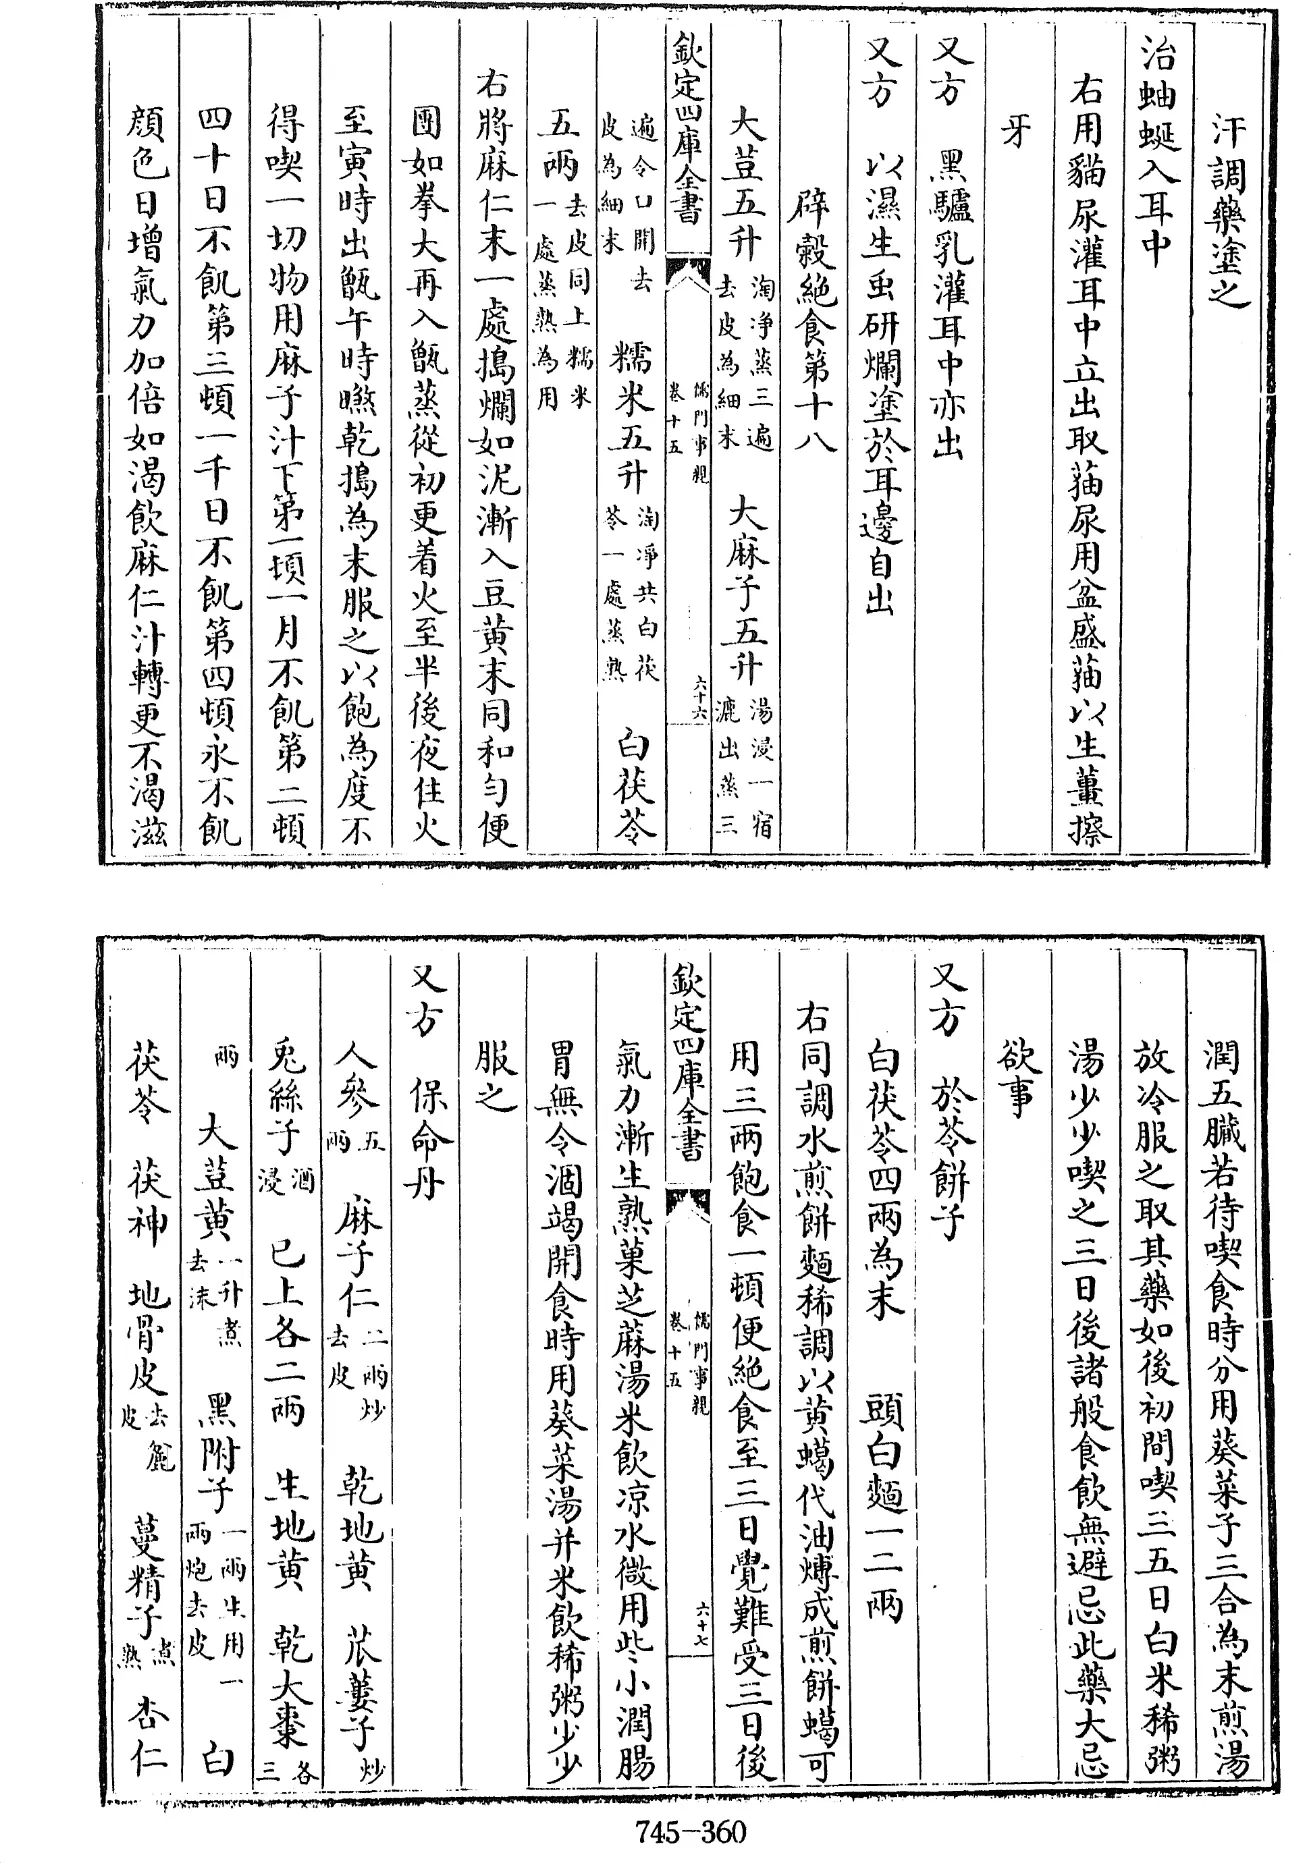 汗調藥塗之
治蚰蜒入耳中
右用貓尿灌耳中立出取猫尿用盆盛猫以生薑擦
牙
又方　黑驢乳灌耳中亦出
又方　以濕生虫研爛塗於耳邊自出
辟穀絶食第十八
大荳五升淘净蒸三遍去皮為細末　大麻子五升湯浸一宿漉出蒸三
欽定四庫全書　儒門事親卷十五　六十六
遍令口開去皮為細末　糯米五升淘凈共白茯苓一處蒸熟　白茯苓
五兩去皮同上糯米一處蒸熟為用
右將麻仁末一處搗爛如泥漸入豆黄末同和匀便
團如拳大再入甑蒸從初更着火至半後夜住火
至寅時出甑午時㬠乾搗為末服之以飽為度不
得喫一切物用麻子汁下第一頓一月不飢第二頓
四十日不飢第三頓一千日不飢第四頓永不飢
顔色日增氣力加倍如渴飲麻仁汁轉更不渴滋
潤五臟若待喫食時分用葵菜子三合為末煎湯
放冷服之取其藥如後初間喫三五日白米稀粥
湯少少喫之三日後諸般食飲無避忌此藥大忌
欲事
又方　於苓餅子
白茯苓四兩為末　頭白麵一二兩
右同調水煎餅麵稀調以黄蠟代油煿成煎餅蠟可
用三兩飽食一頓便絶食至三日覺難受三日後
欽定四庫全書　儒門事親卷十五　六十七
氣力漸生熟菓芝蔴湯米飲凉水微用些小潤腸
胃無令涸竭開食時用葵菜湯并米飲稀粥少少
服之
又方　保命丹
人參五兩　麻子仁二兩炒去皮　乾地黄　苽蔞子炒
兎絲子酒浸　已上各二兩　生地黄　乾大棗各三
兩　大荳黄一升煮去沫　黑附子一兩生用一兩炮去皮　白
茯苓　茯神　地骨皮去麄皮　蔓精子煮熟　杏仁
745-360